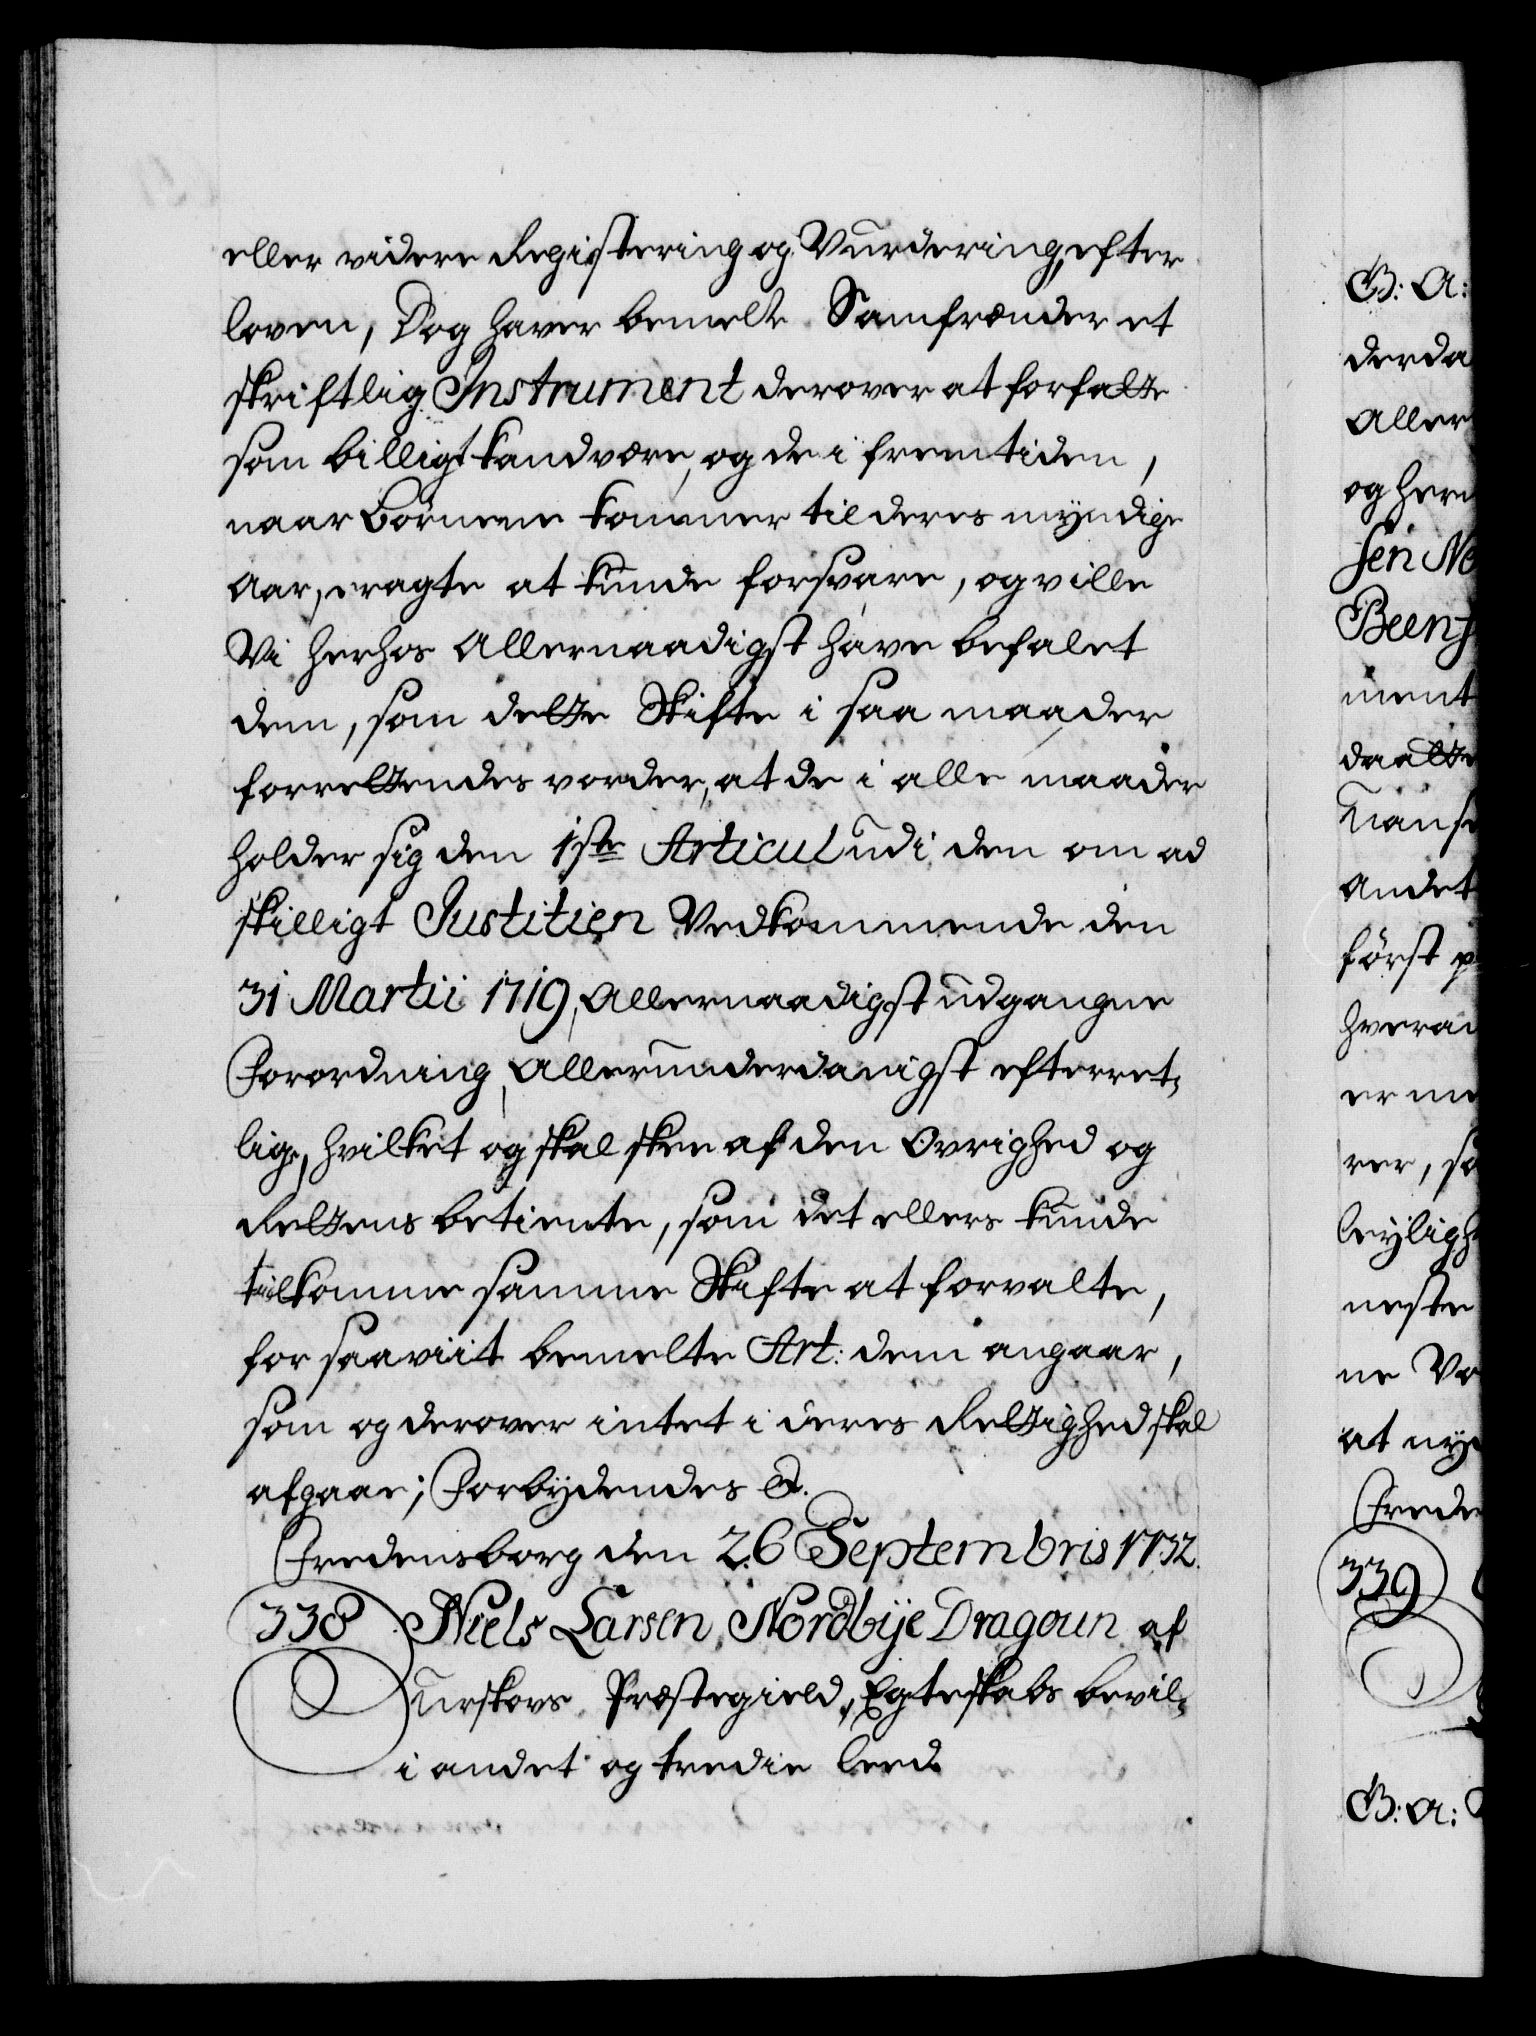 eller videre Registering og Vurdering efter
loven, Dog haver bemelte Samfrænder et
skriftlig Instrument derover at forfatte
som billigt kand være, og de i fremtiden,
naar Børnene kommer til deres myndige
Aar, eragte at kunde forsvare, og ville
Vi herhos Allernaadigst have befalet
dem, som dette Skifte i saa maader
forrettendes vorder, at de i alle maader
holder sig den 1ste Articul udi den om ad
skilligt Justitien Vedkommende den
31 Martii 1719, Allernaadigst udgangne
Forordning, Allerunderdanigst efterret,
lige, hvilket og skal skee af den Øvrighed og
Rettens betiente, som det ellers kunde
tilkomme samme Skifte at forvalte,
for saaviit bemelte Art: dem angaar,
som og derover intet i deres Rettighed skal
afgaae; Forbydendes &.
Fredensborg den 26 Septembris 1732.
338 Niels Larsen Nordbÿe Dragoun af
Urskovs Præstegield, Egteskabs bevil,
i andet og tredie leed.
G: A:
derda
Aller
og her
sen
Beenf
ment
daatte
andet
først p
er me
rer, so
leyligh
neste
ne Vo
at nyd
Freden
339
G: A: